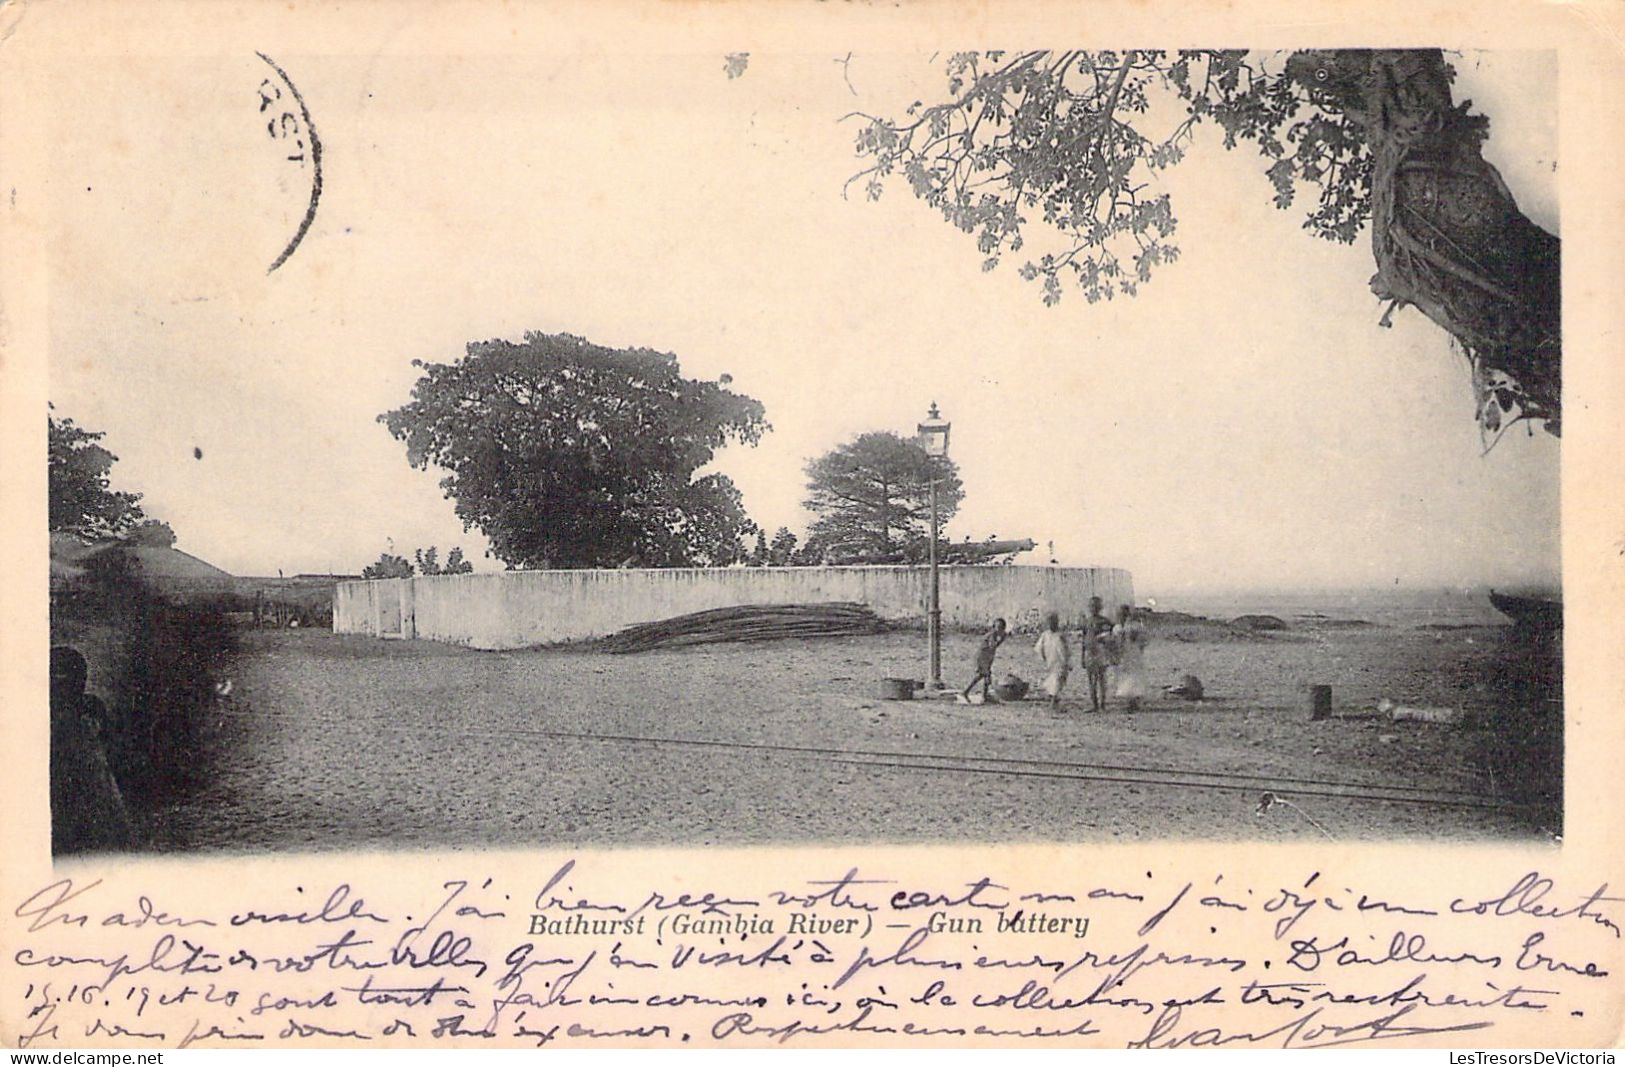 RST
Mademoiselle. J'ai bien reçu votre carte mais j'ai déjà une collection
Bathurst (Gambia River) — Gun battery
complète de votre ville que j'ai visité à plusieurs reprises. D'ailleurs
15. 16. 19 et 20 sont tout à fait inconnus ici, où la collection est très restreinte.
Je vous prie donc de m'excuser. Respectueusement
LesTresorsDeVictoria